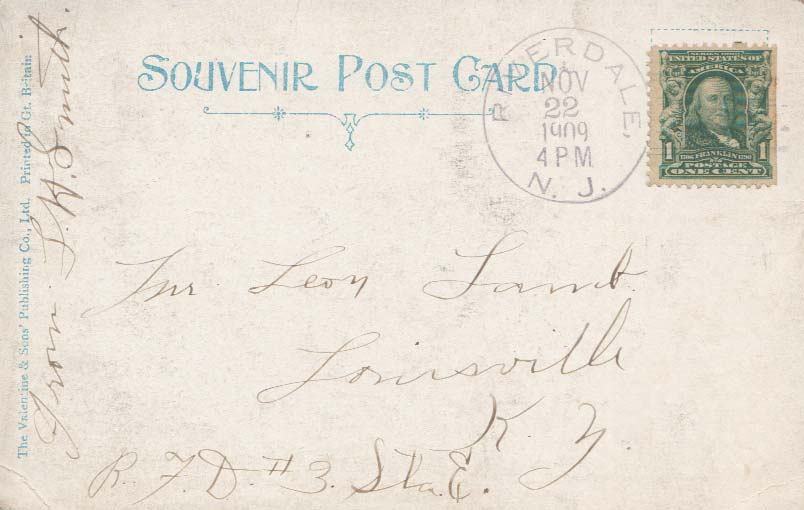 SOUVENIR POST CARD
RIVERDALE,
NOV
22
1909
4 PM
N. J.
SERIES 1902
UNITED STATES OF
AMERICA
1706 FRANKLIN 1790
1 POSTAGE 1
ONE CENT
Mr. Leon Lamb
Louisville
K y.
R. F. D. #3. Sta. E.
From S. H. Smith.
The Valentine & Sons' Publishing Co., Ltd. Printed in Gt. Britain